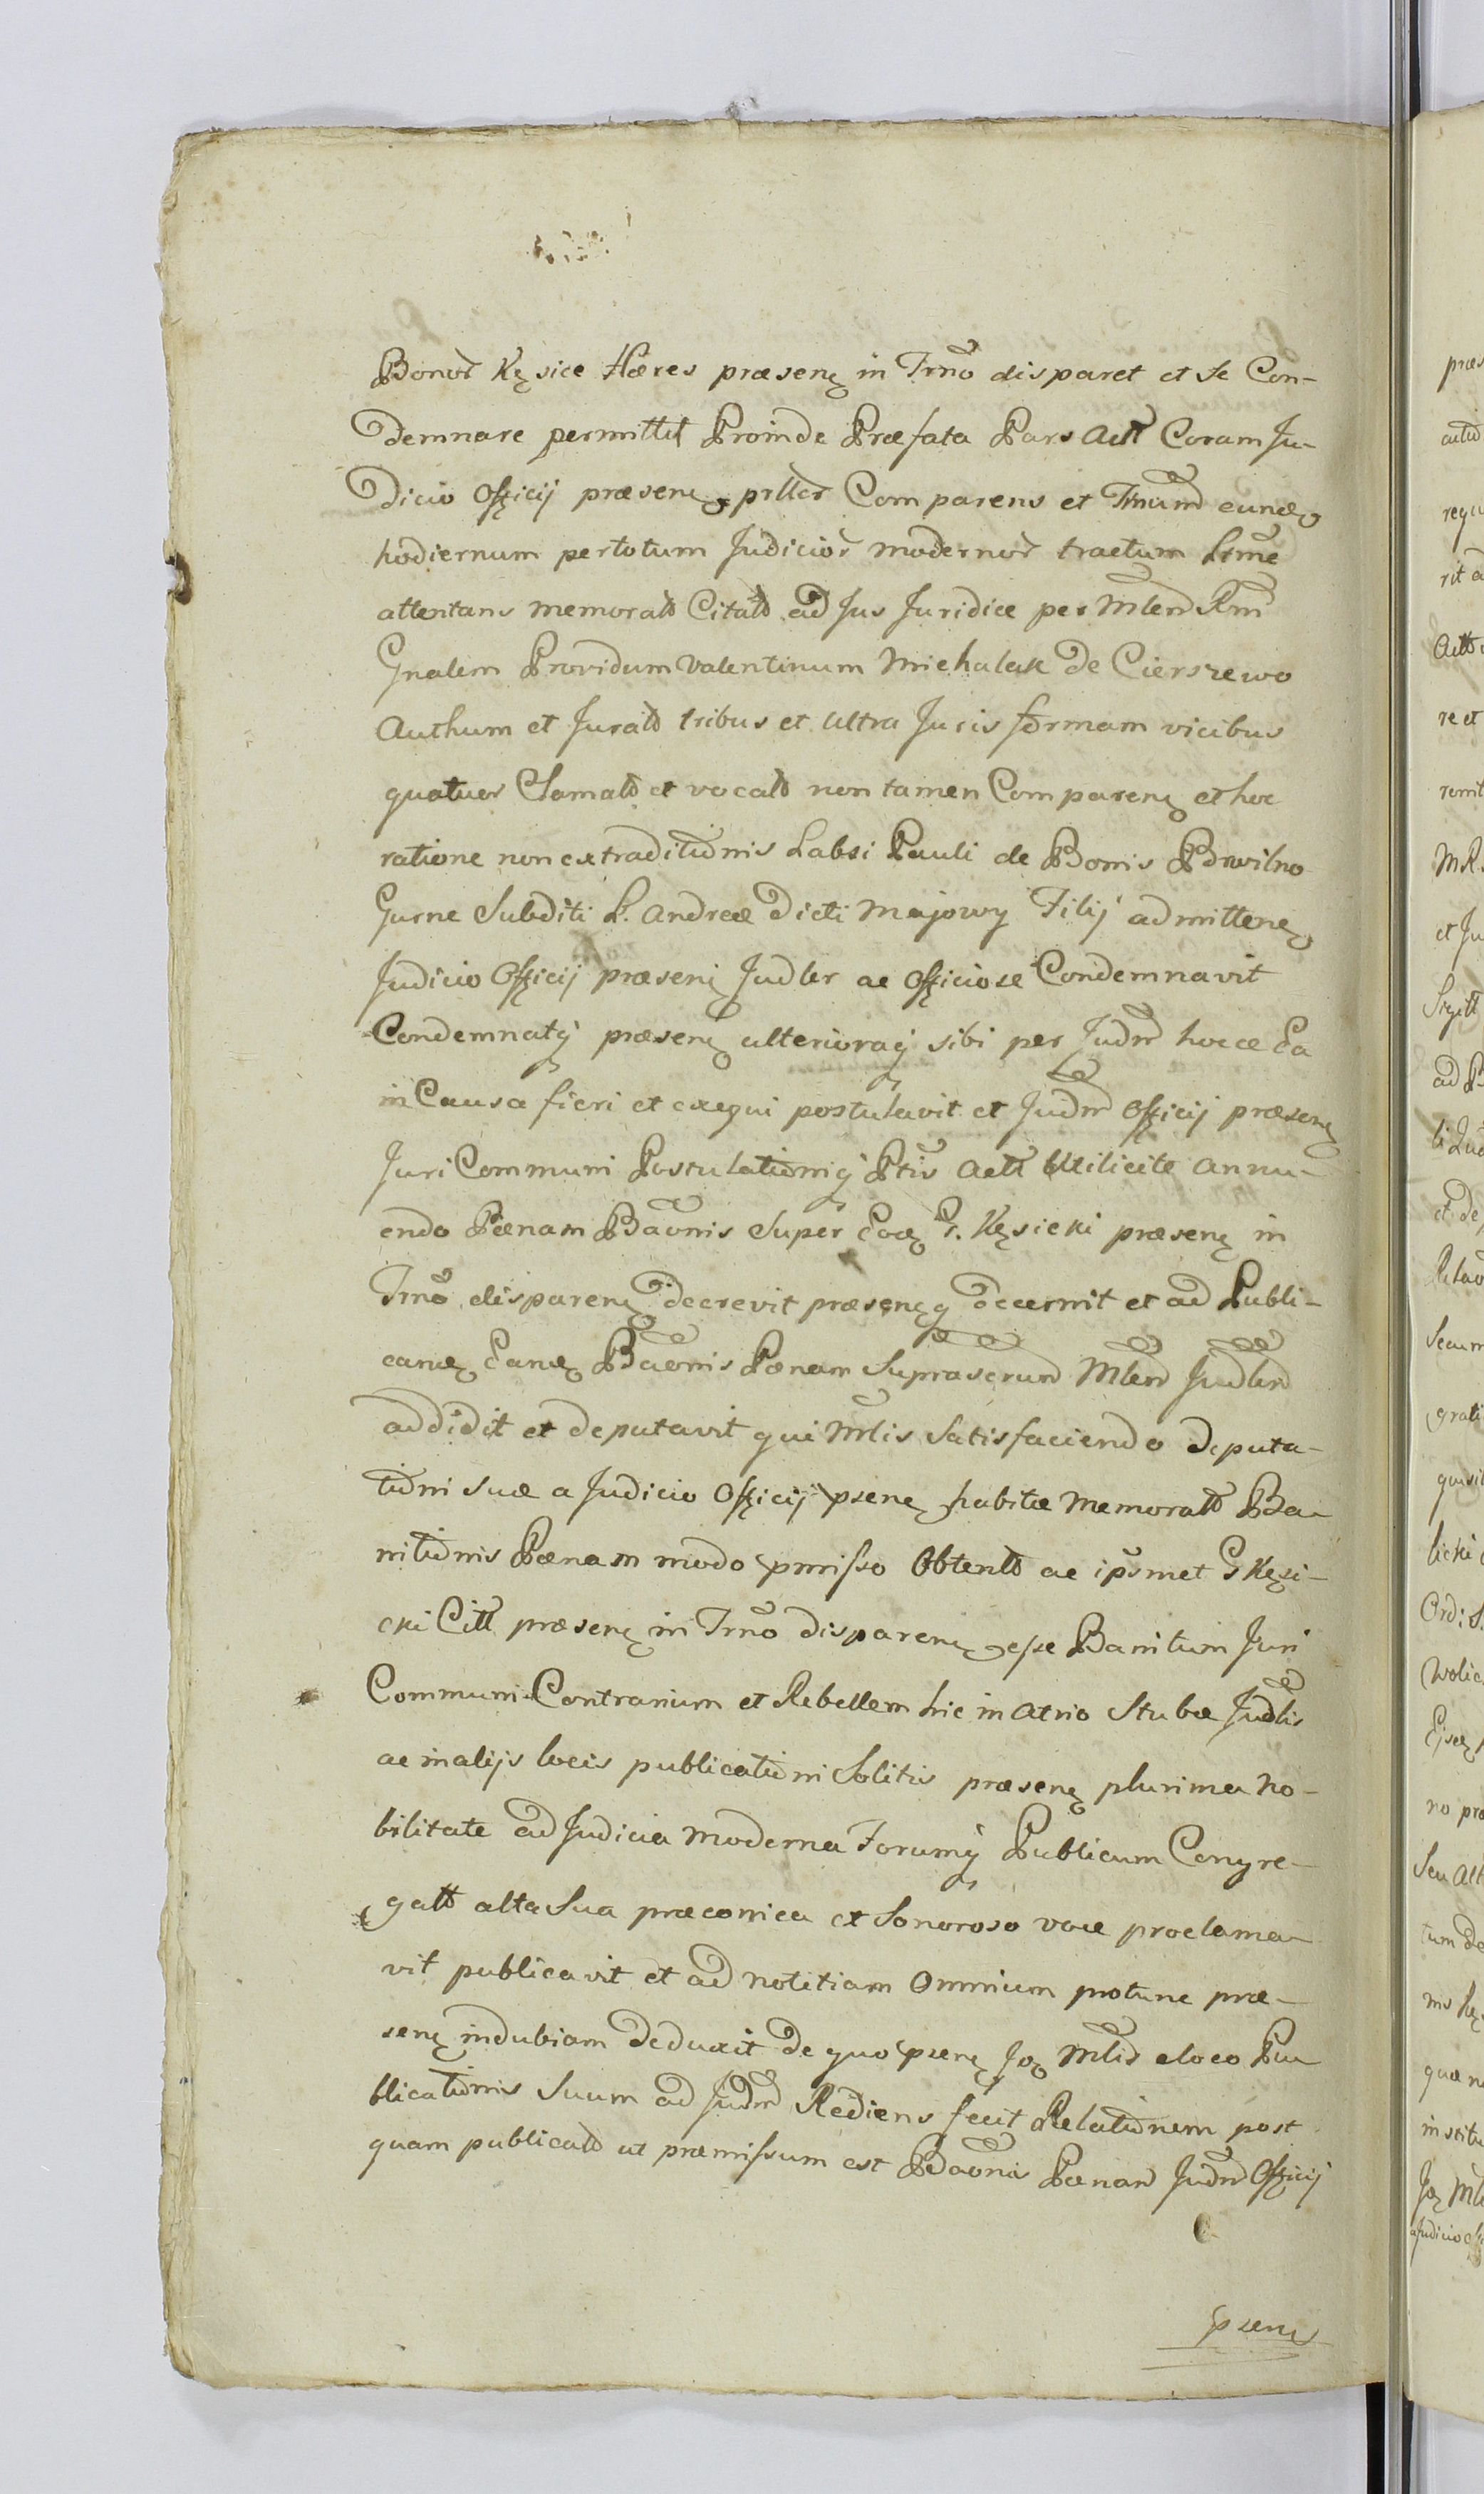 Bonor Kęsice Hæres præsenę in Trno disparet et se Con-
demnare permittit Proinde Præfata Pars Actt Coram Ju-
dicio Officij præsenę prller Comparens et Trnum eundę
hodiernum per totum Judicior modernor tractum Lrme
attentans memoratt Citatt ad Jus Juridice per Mlem Rm
Gnalem Providum Valentinum Michalak de Cierszewo
Authum et Juratt tribus et ultra Juris formam vicibus
quatuor Clamatt et vocatt non tamen Comparenę et hoc
ratione non extraditionis Labsi Pauli de Bonis Brwilno
Gurne Subditi L. Andreæ dicti Majowy Filij admittenę
Judicio Officij præsenę Judler ac Officiose Condemnavit
Condemnatq præsenę ulterioraq sibi per Judm hocce Ea
in Causa fieri et exequi postulavit et Judm Officij præsenę
Juri Communi Postulationiq Ptis Actt Utilicite annu-
endo Pænam Baonis super Eoę G. Kęsicki præsenę in
Trno disparenę decrevit præsenęq decernit et ad Publi-
candę Eandę Baonis Pænam Suprascrum Mlem Judlem
addidit et deputavit qui Mlis Satisfaciendo deputa-
tioni suæ a Judicio Officij psenę habitæ memoratt Ba-
nitionis Pænam modo pmisso Obtentt ac ipsmet G Kęsi-
cki Citt præsenę in Trno disparenę esse Banitum Juri
Communi Contrarium et Rebellem hic in atrio Stubæ Judlis
ac in alijs locis publicationi Solitis præsenę plurima No-
bilitate ad Judicia moderna Forumq Publicum Congre-
gatt alta Sua præconica et Sonoroso voce proclama-
vit publicavit et ad notitiam Omnium protunc præ-
senę indubiam deduxit de quo psenę Joę Mlis e loco Pu-
blicationis suum ad Judm Rediens fecit Relationem post
quam publicatt ut præmissum est Baonis Pænam Judm Officij
psenę